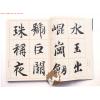 水玉出
崑岡劍
號巨闕
珠稱夜